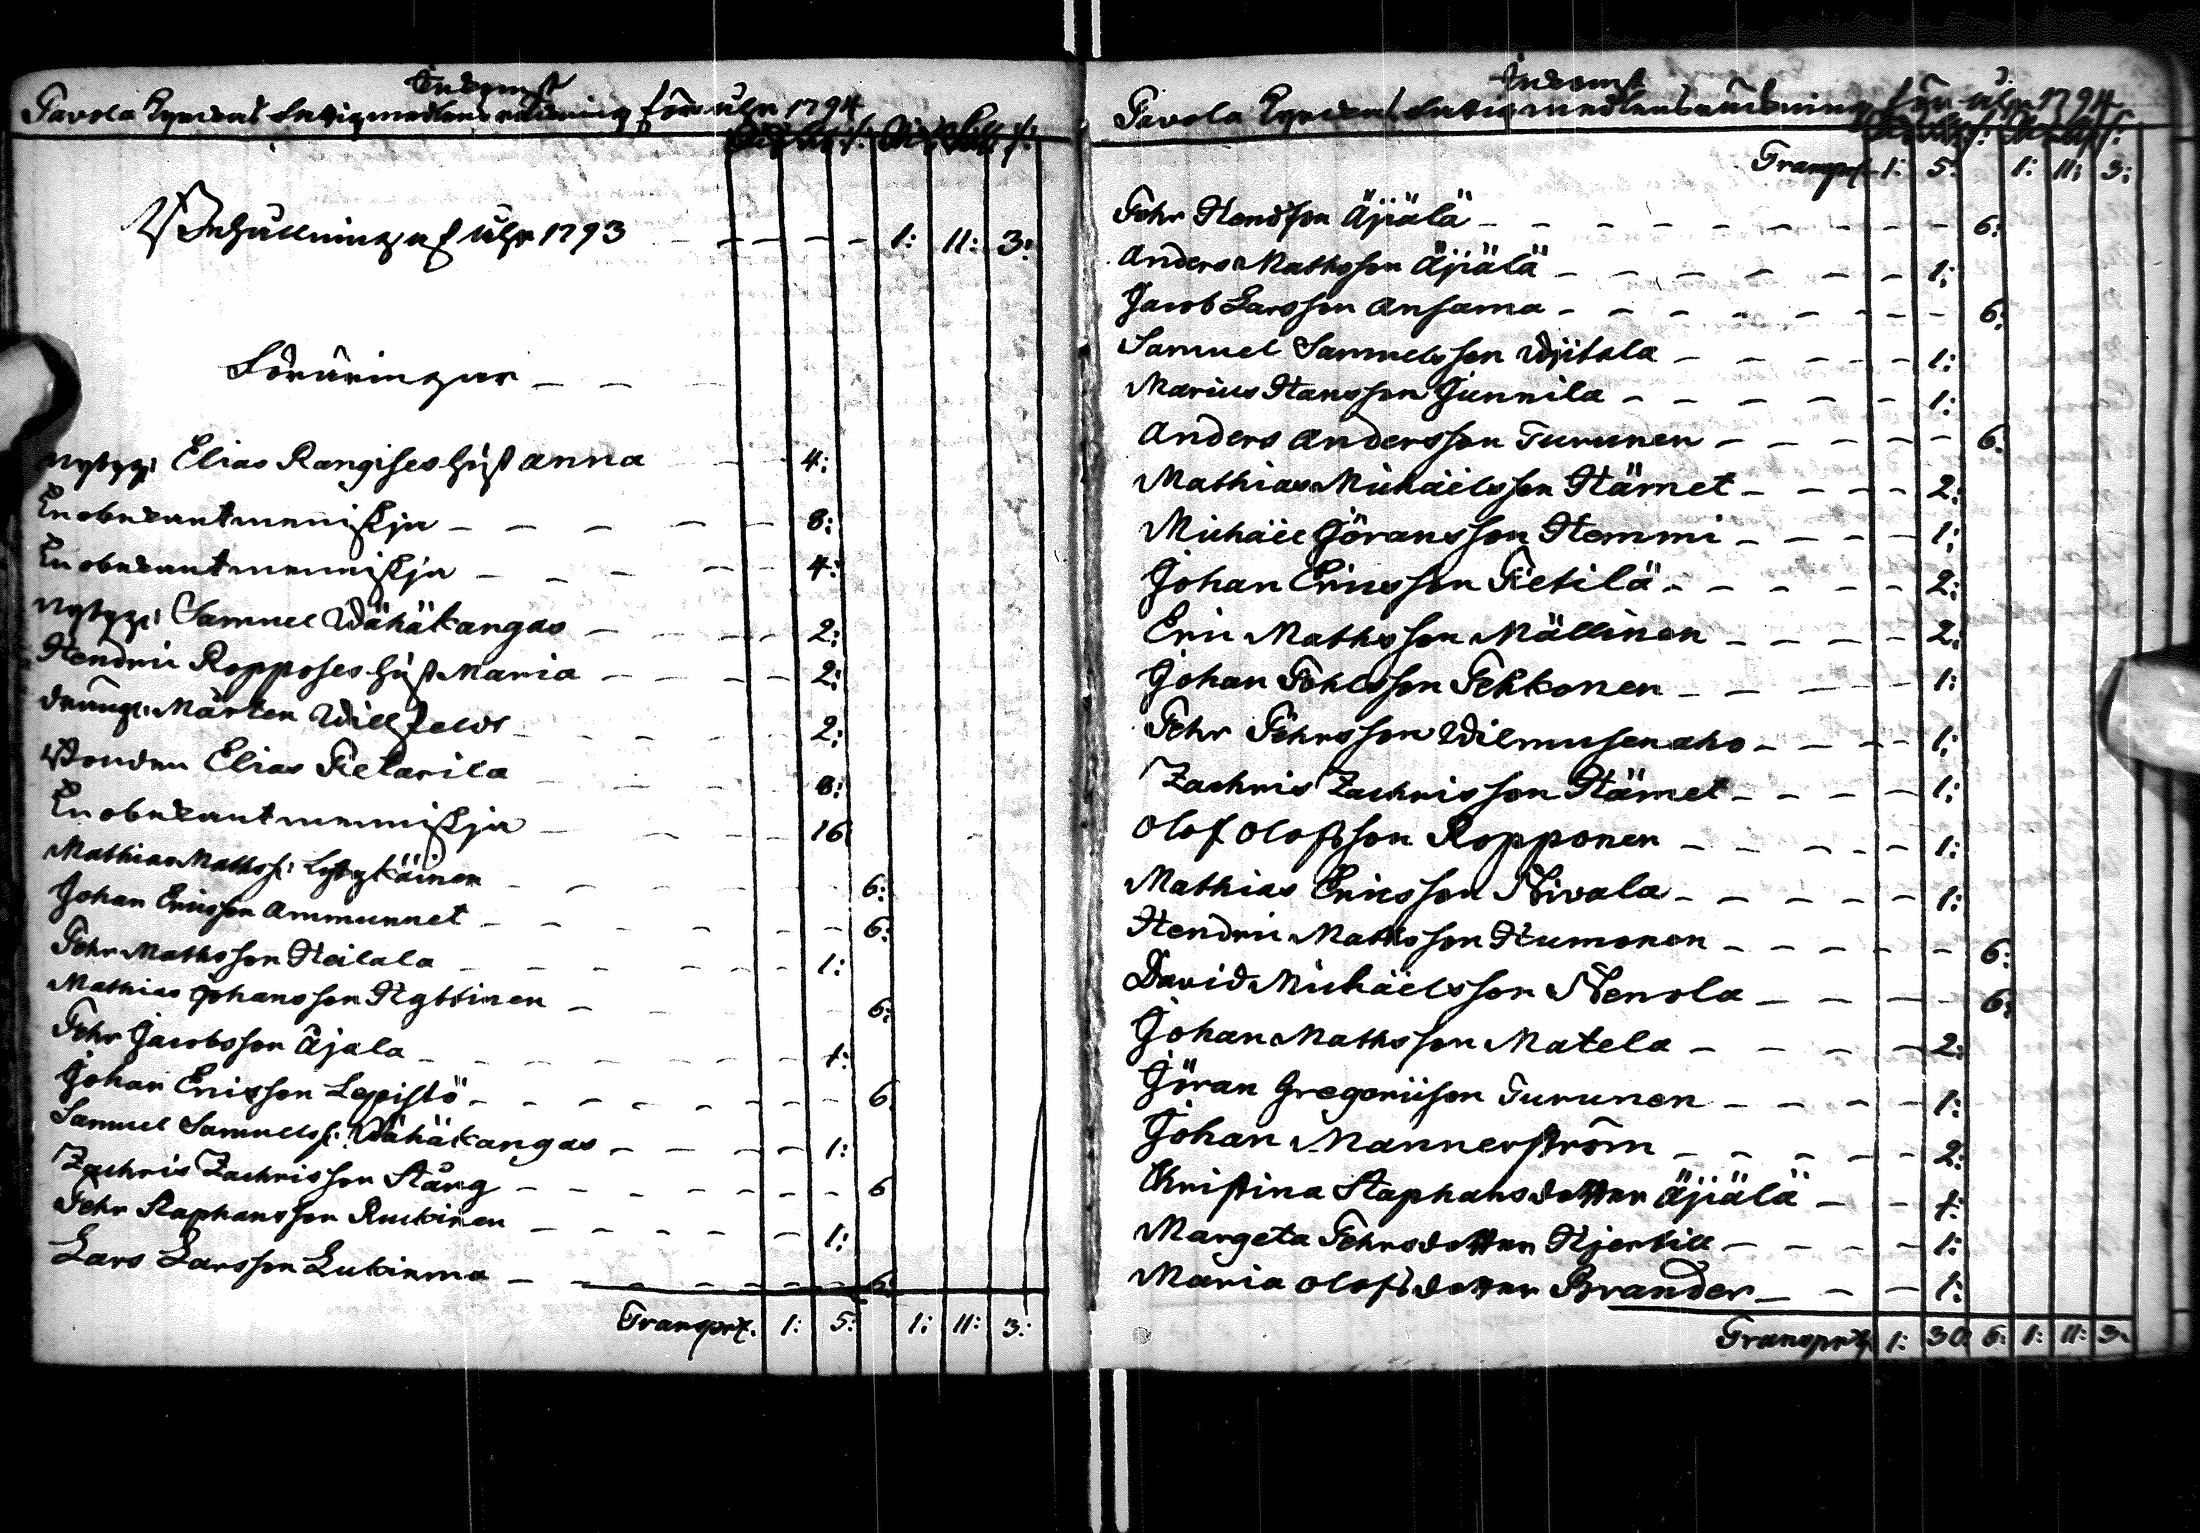 Inkomst
Pavola Kyrckas fattigmedlens räckning för åhr 1794
Rd: Sk: r: Rd: Sk: r:
Behållning af åhr 1793 - - - - - 1: 11: 3:
Föräringar - - -
Nybyg: Elias Rangises hust Anna - - - 4:
En obekant menniskja - - - - - 8:
En obekant menniskja - - - - - 4:
Nybyg: Samuel Wähäkangas - - - - 2:
Hendric Ropposes hust Maria - - - - 2:
Dräng: Mårten Willfeldt - - - - 2:
Bonden Elias Pietarila - - - 8:
En obekant menniskja - - - 16
Mathias Mathss: Lytykäinen - - - - 6:
Johan Ericsson Ammunnet - - - - 6:
Pehr Mathsson Heilala - - - - 1:
Mathias Johansson Hyttinen - - - - 6:
Pehr Jacobsson Äjälä - - - - 1:
Johan Ericsson Lepistö - - - - 6
Samuel Samuelss: Wähäkangas - - - - 1:
Zachris Zachrisson Stång - - - - 6
Pehr Staphansson Ruckinen - - - - 1:
Lars Larsson Lukinma - - - - 6:
Transport. 1: 5: 1: 11: 3:
Inkomst 3.
Pavola Kyrckas fattigmedlens räckning för åhr 1794
Transport 1: 5: 1: 11: 3:
Pehr Hendsson Äjiälä - - - - 6:
Anders Mathsson Äjiälä - - - - 1:
Jacob Larsson Ansama - - - - 6:
Samuel Samuelsson Wjitala - - - - 1:
Marcus Hansson Junnila - - - - 1:
Anders Andersson Turunen - - - - 6:
Mathias Michäelsson Härnet - - - - 2:
Michäel Jöransson Hemmi - - - - 1:
Johan Ericsson Pietilä - - - - 2:
Eric Mathsson Mällinen - - - - 2:
Johan Pohlsson Pekkonen - - - - 1:
Pehr Pehrsson Wilmusenaho - - - - 1:
Zachris Zachrisson Härnet - - - - 1:
Olof Olofsson Ropponen - - - - 1:
Mathias Ericsson Nivala - - - - 1:
Hendric Mathsson Humonen - - - - 6:
David Michäelsson Nenola - - - - 6:
Johan Mathsson Matela - - - - 2:
Jöran Gregeriison Turunen - - - - 1:
Johan Mannerström - - - - 2:
Christina Staphansdotter Äjiälä - - - 1:
Margeta Pehrsdotter Hjertill - - - - 1:
Maria Olofsdotter Brander - - - 1:
Transport 1: 30 6: 1: 11: 3.